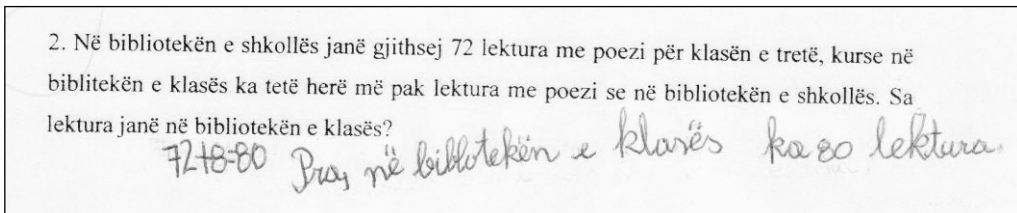 2. Në bibliotekën e shkollës janë gjithsej 72 lektura me poezi për klasën e tretë, kurse në
biblitekën e klasës ka tetë herë më pak lektura me poezi se në bibliotekën e shkollës. Sa
lektura janë në bibliotekën e klasës?
72+8=80 Pra, në bibliotekën e klasës ka 80 lektura.